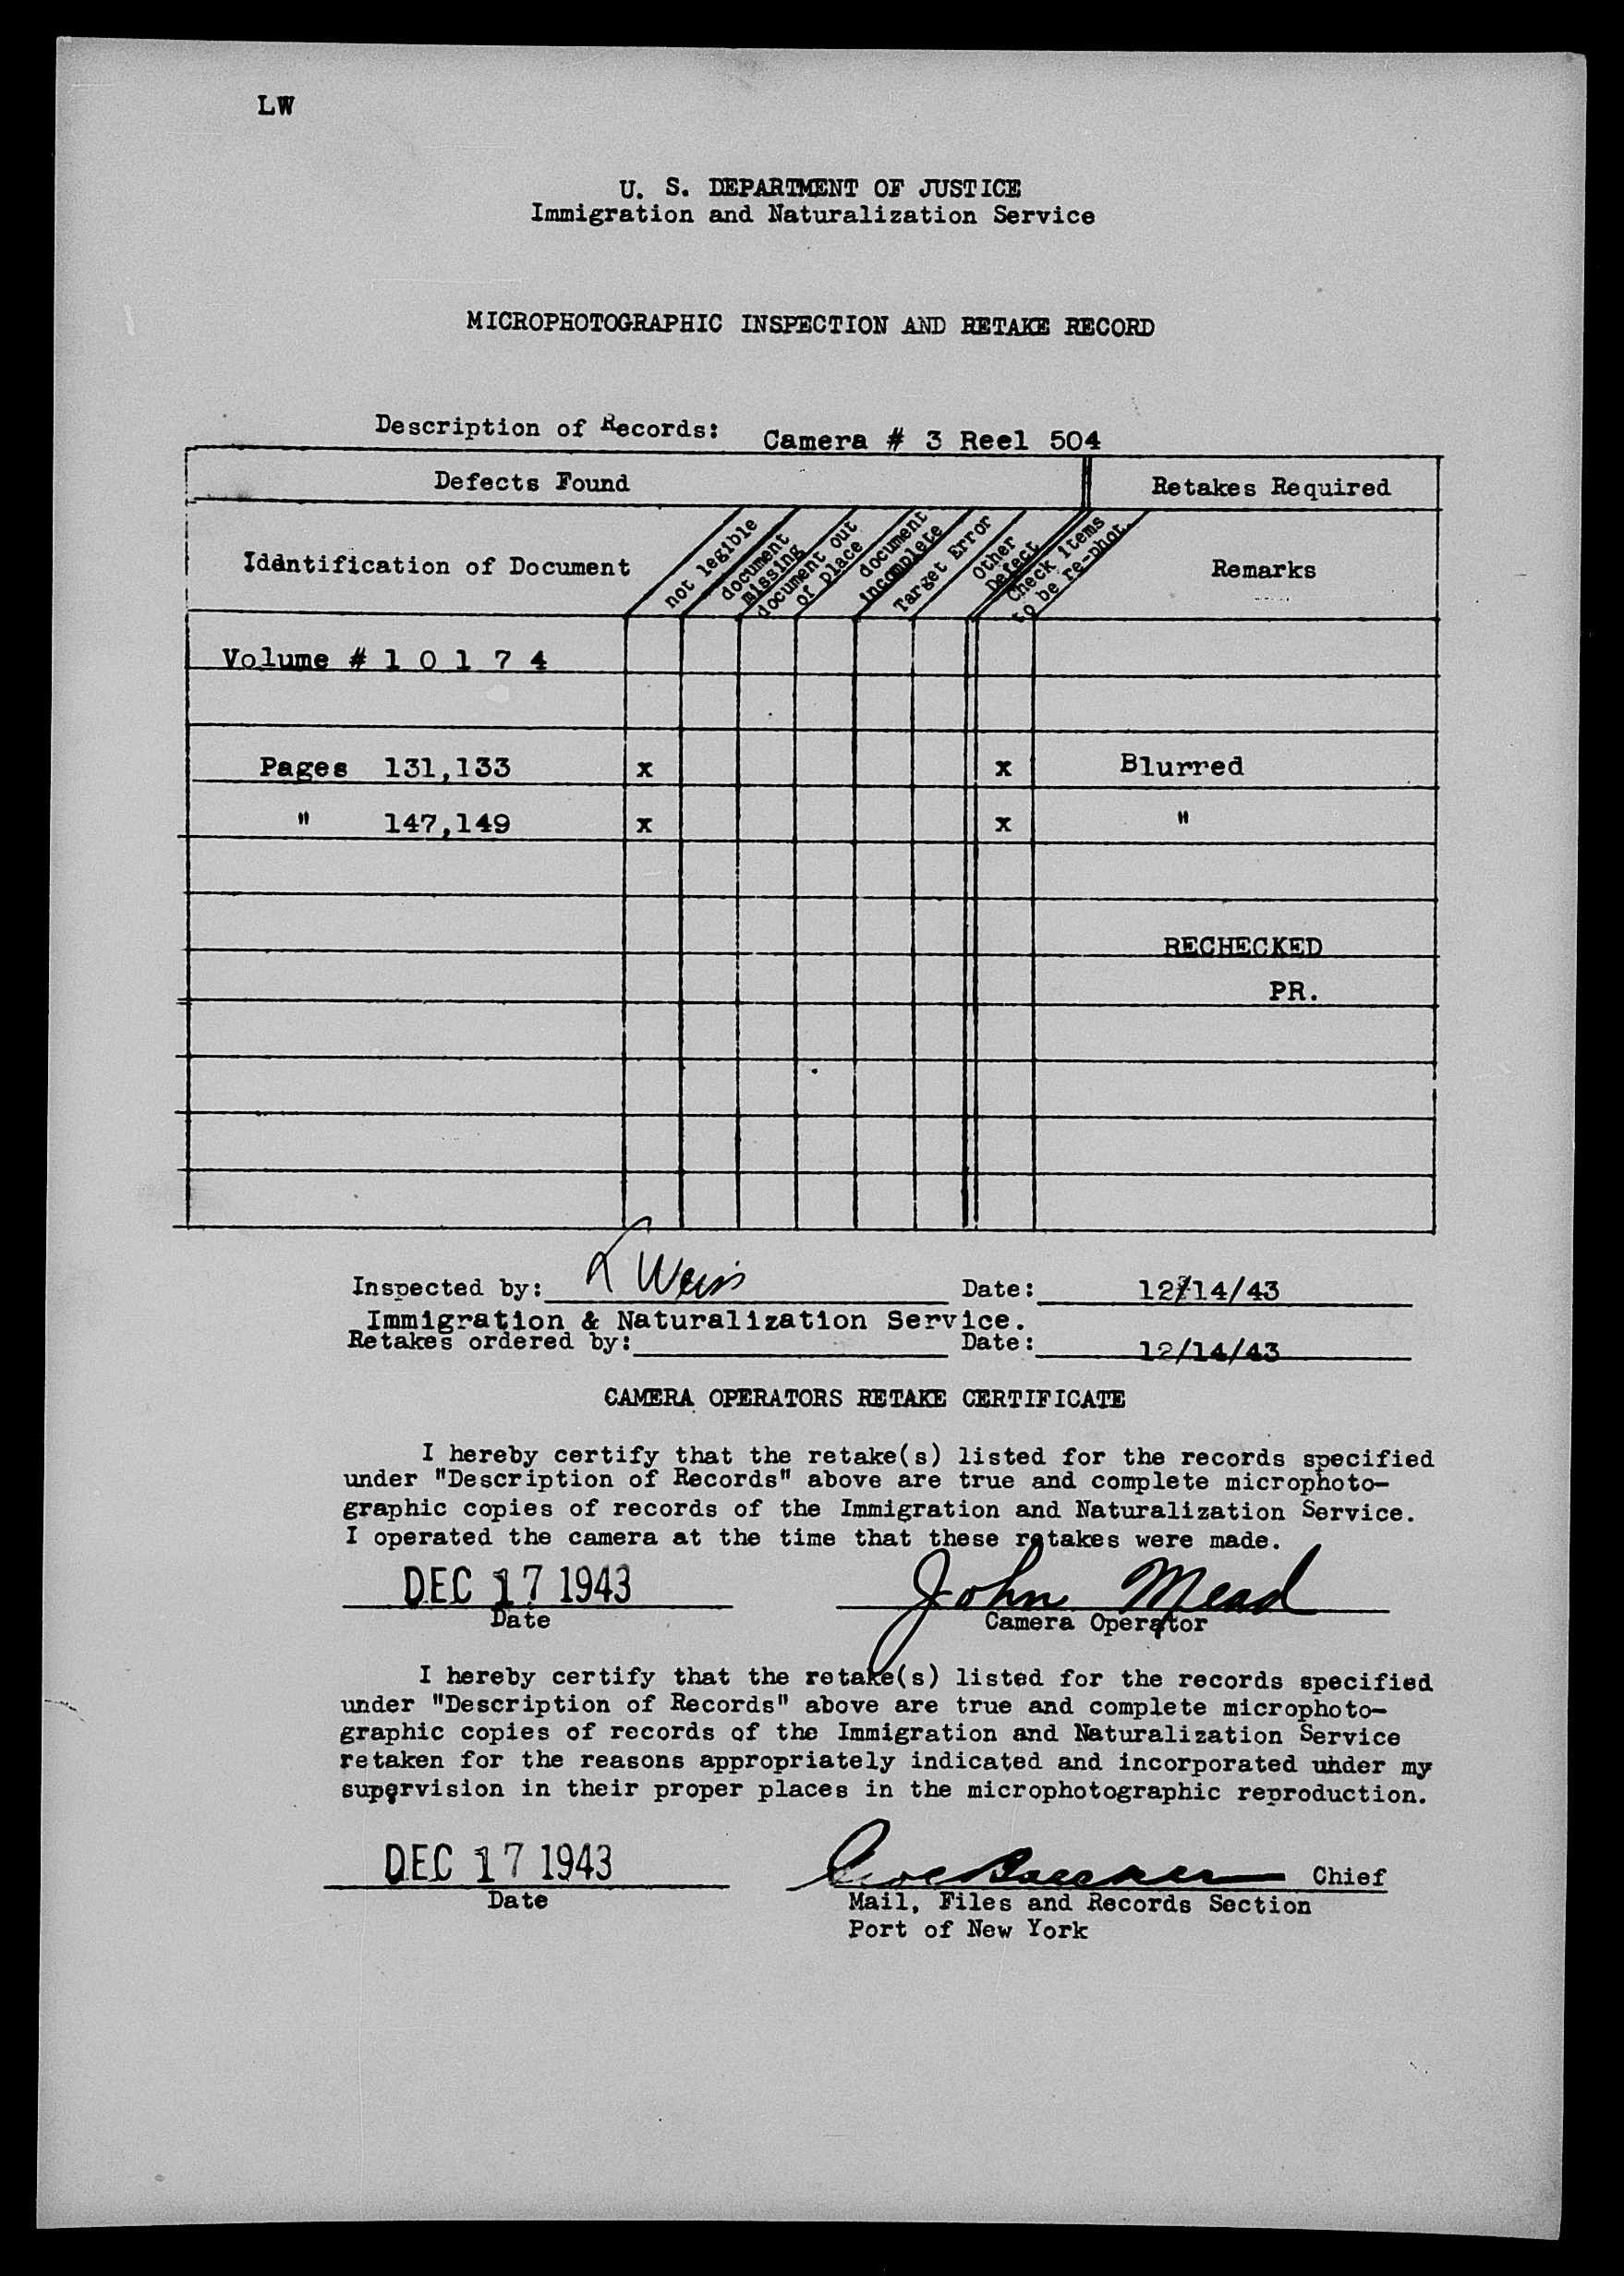 LW
U. S. DEPARTMENT OF JUSTICE
Immigration and Naturalization Service
MICROPHOTOGRAPHIC INSPECTION AND RETAKE RECORD
Description of Records: Camera # 3 Reel 504
Defects Found Retakes Required
Iddntification of Document not legible document missing document out of place document incomplete Target Error Other Defect Check items to be re-phot. Remarks
Volume # 1 0 1 7 4
Pages 131,133 x x Blurred
" 147,149 x x "
RECHECKED
PR.
Inspected by: L Weiss Date: 12/14/43
Immigration & Naturalization Service.
Retakes ordered by: Date: 12/14/43
CAMERA OPERATORS RETAKE CERTIFICATE
I hereby certify that the retake(s) listed for the records specified
under "Description of Records" above are true and complete microphoto-
graphic copies of records of the Immigration and Naturalization Service.
I operated the camera at the time that these retakes were made.
DEC 17 1943 John Mead
Date Camera Operator
I hereby certify that the retake(s) listed for the records specified
under "Description of Records" above are true and complete microphoto-
graphic copies of records of the Immigration and Naturalization Service
retaken for the reasons appropriately indicated and incorporated under my
supervision in their proper places in the microphotographic reproduction.
DEC 17 1943 Chief
Date Mail, Files and Records Section
Port of New York